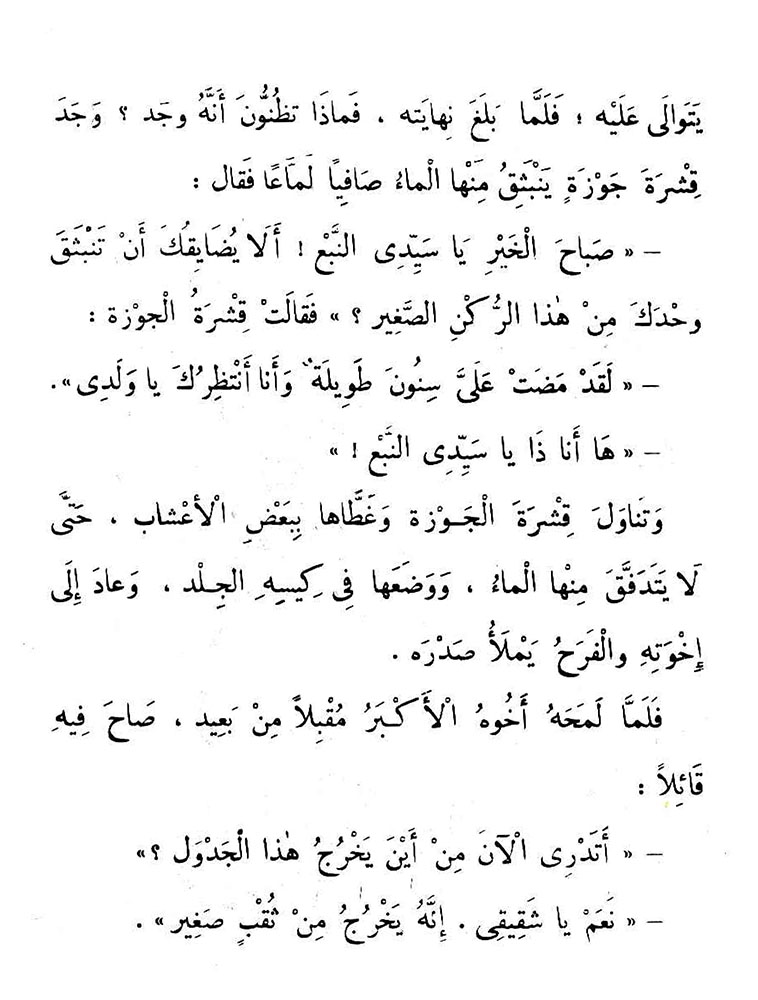 يَتَوالَى عَلَيْه ؛ فَلَمَّا بَلَغَ نِهايَته ، فَماذَا تظُنُّونَ أَنَّهُ وجَد ؟ وَجَدَ
قِشْرَةَ جَوْزَةٍ يَنْبَثِقُ مِنْها الْماءُ صَافِيًا لَمَّاعًا فَقال :
– « صَباحَ الْخَيْرِ يَا سَيِّدِى النَّبْع ! أَلَا يُضَايِقُكَ أَنْ تَنْبَثِقَ
وحْدَكَ مِنْ هٰذا الرُّكْنِ الصَّغِير ؟ » فَقالَتْ قِشْرَةُ الْجوْزة :
– « لَقَدْ مَضَتْ عَلَىَّ سِنُونَ طَوِيلَةٌ وَأَنا أَنْتَظِرُكَ يا وَلَدِى ».
– « هَا أَنا ذَا يا سَيِّدِى النَّبْع ! »
وَتَناوَلَ قِشْرَةَ الْجَوْزة وَغَطَّاها بِبَعْضِ الْأعْشاب ، حَتَّى
لَا يَتَدَفَّقَ مِنْها الْماءُ ، وَوَضَعَها فِى كِيسِهِ الجِلْد ، وَعادَ إِلَى
إِخْوَتِهِ والْفَرَحُ يَمْلَأُ صَدْرَه .
فَلَمَّا لَمَحَهُ أَخُوهُ الْأَكْبَرُ مُقْبِلاً مِنْ بَعِيد ، صَاحَ فِيهِ
قَائِلاً :
– « أَتَدْرِى الْآنَ مِنْ أَيْنَ يَخْرُجُ هٰذا الْجَدْوَل ؟»
– « نَعَمْ يا شَقِيقِى . إِنَّهُ يَخْرُجُ مِنْ ثُقْبٍ صَغِير » .